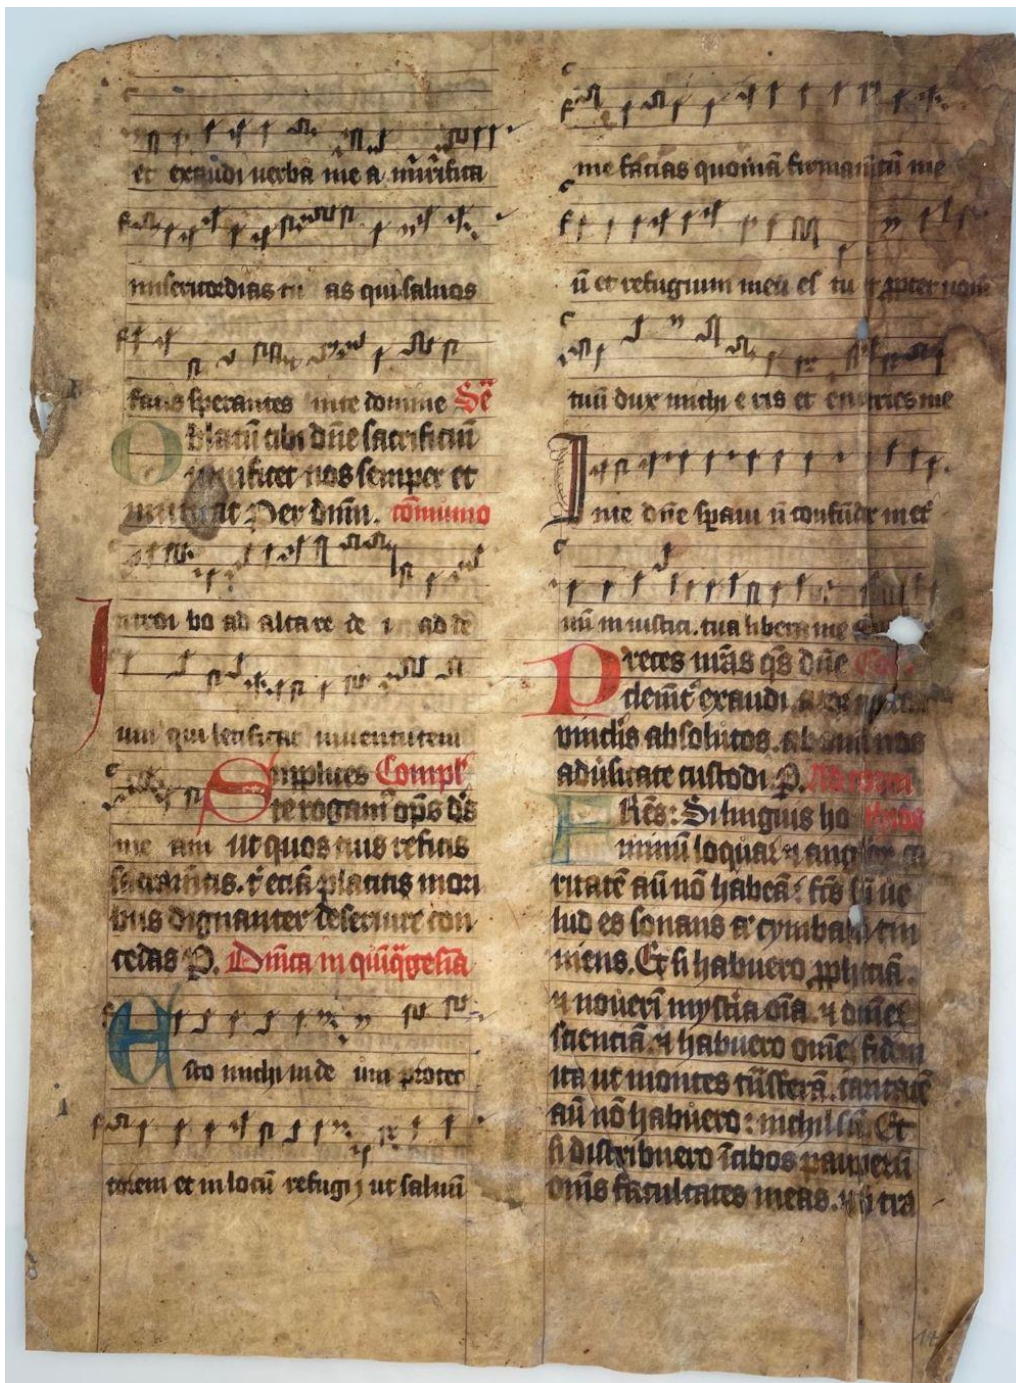 et exaudi verba me a mirifica
misericordias tu as qui salvos
facis sperantes in te domine Se
Oblatū tibi dn̄e sacrificiū
vivificet nos semper et
muniat Per dnm̄. cōmunio
Introi bo ad altare de i ad de
um qui letificat iuventutem
Supplices Compl̄
te rogam᷒ op̄s ds̄
me am ut quos tuis reficis
sacramētis. t̄ etiā placitis mori
bus dignanter deservire con
cedas P. Dn̄ica in quīq̄gesīa
Esto michi in de um protec
torem et in locū refugij ut salvū
me facias quoniā firmamētū me
ū et refugium meū es tu et ꝓpter nom̄
tuū dux michi e ris et enutries me
In te dn̄e speravi n̄ confūdar in et̄
nū in iusticia tua libera me
Preces nr̄as qs̄ dn̄e
clemēt᷒ exaudi
vinclis absolutos. ab omni nos
adūsitate custodi. P. Ad corin
Fr̄es: Si linguis ho thios
minū loquar ⁊ angelor̄ ca
ritatē aū nō habeā: fc̄s sū ve
lud es sonans a᷒ cymbalū tin
niens. Et si habuero ꝓphetiā.
⁊ noverī mystīa oīa. ⁊ omnē
scienciā. ⁊ habuero omnē fidem
ita ut montes trāsferā. caritatē
aū nō habuero: nichil sū. Et
si distribuero ī cibos pauperū
om̄s facultates meas. ⁊ si tra